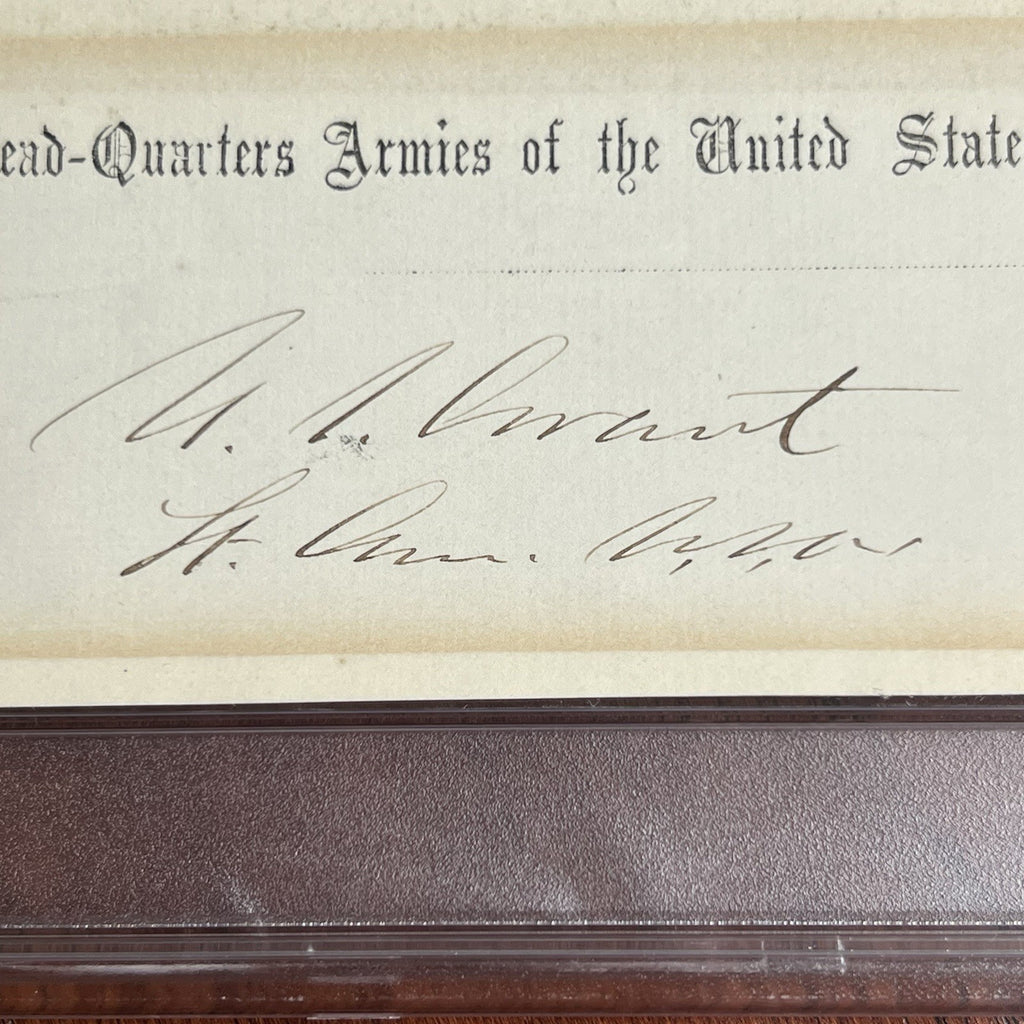 ead-Quarters Armies of the United State
U. S. Grant
Lt. Gen. U.S.A.